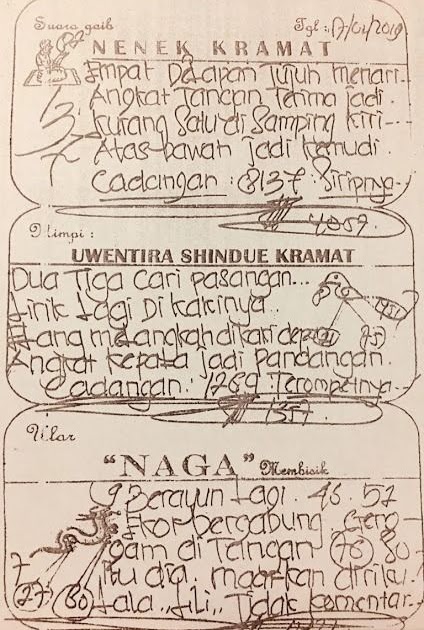 Suara gaib
Tgl : 17/01/2019
NENEK KRAMAT
Empat Delapan Tujuh menari..
Angkat Tangan Terima jadi.
Kurang Satu di Samping kiri---
Atas-bawah jadi kemudi.
Cadangan : 8137. Siripnya--
4057.
Mimpi :
UWENTIRA SHINDUE KRAMAT
Dua Tiga cari pasangan...
Lirik Lagi Di kakinya..
melangkah dikari
Angkat Kepala jadi Pandangan.
Cadangan : 1269 Terompetnya--
1357
Ular
"NAGA" Membisik
9 Berayun Lagi. 46. 57
Ekor bergabung. Gerg-
gam di Tangan 76 80-
Itu dia. maafkan diriku.!
7
27 80 Lala.. Lili.. Tidak komentar--